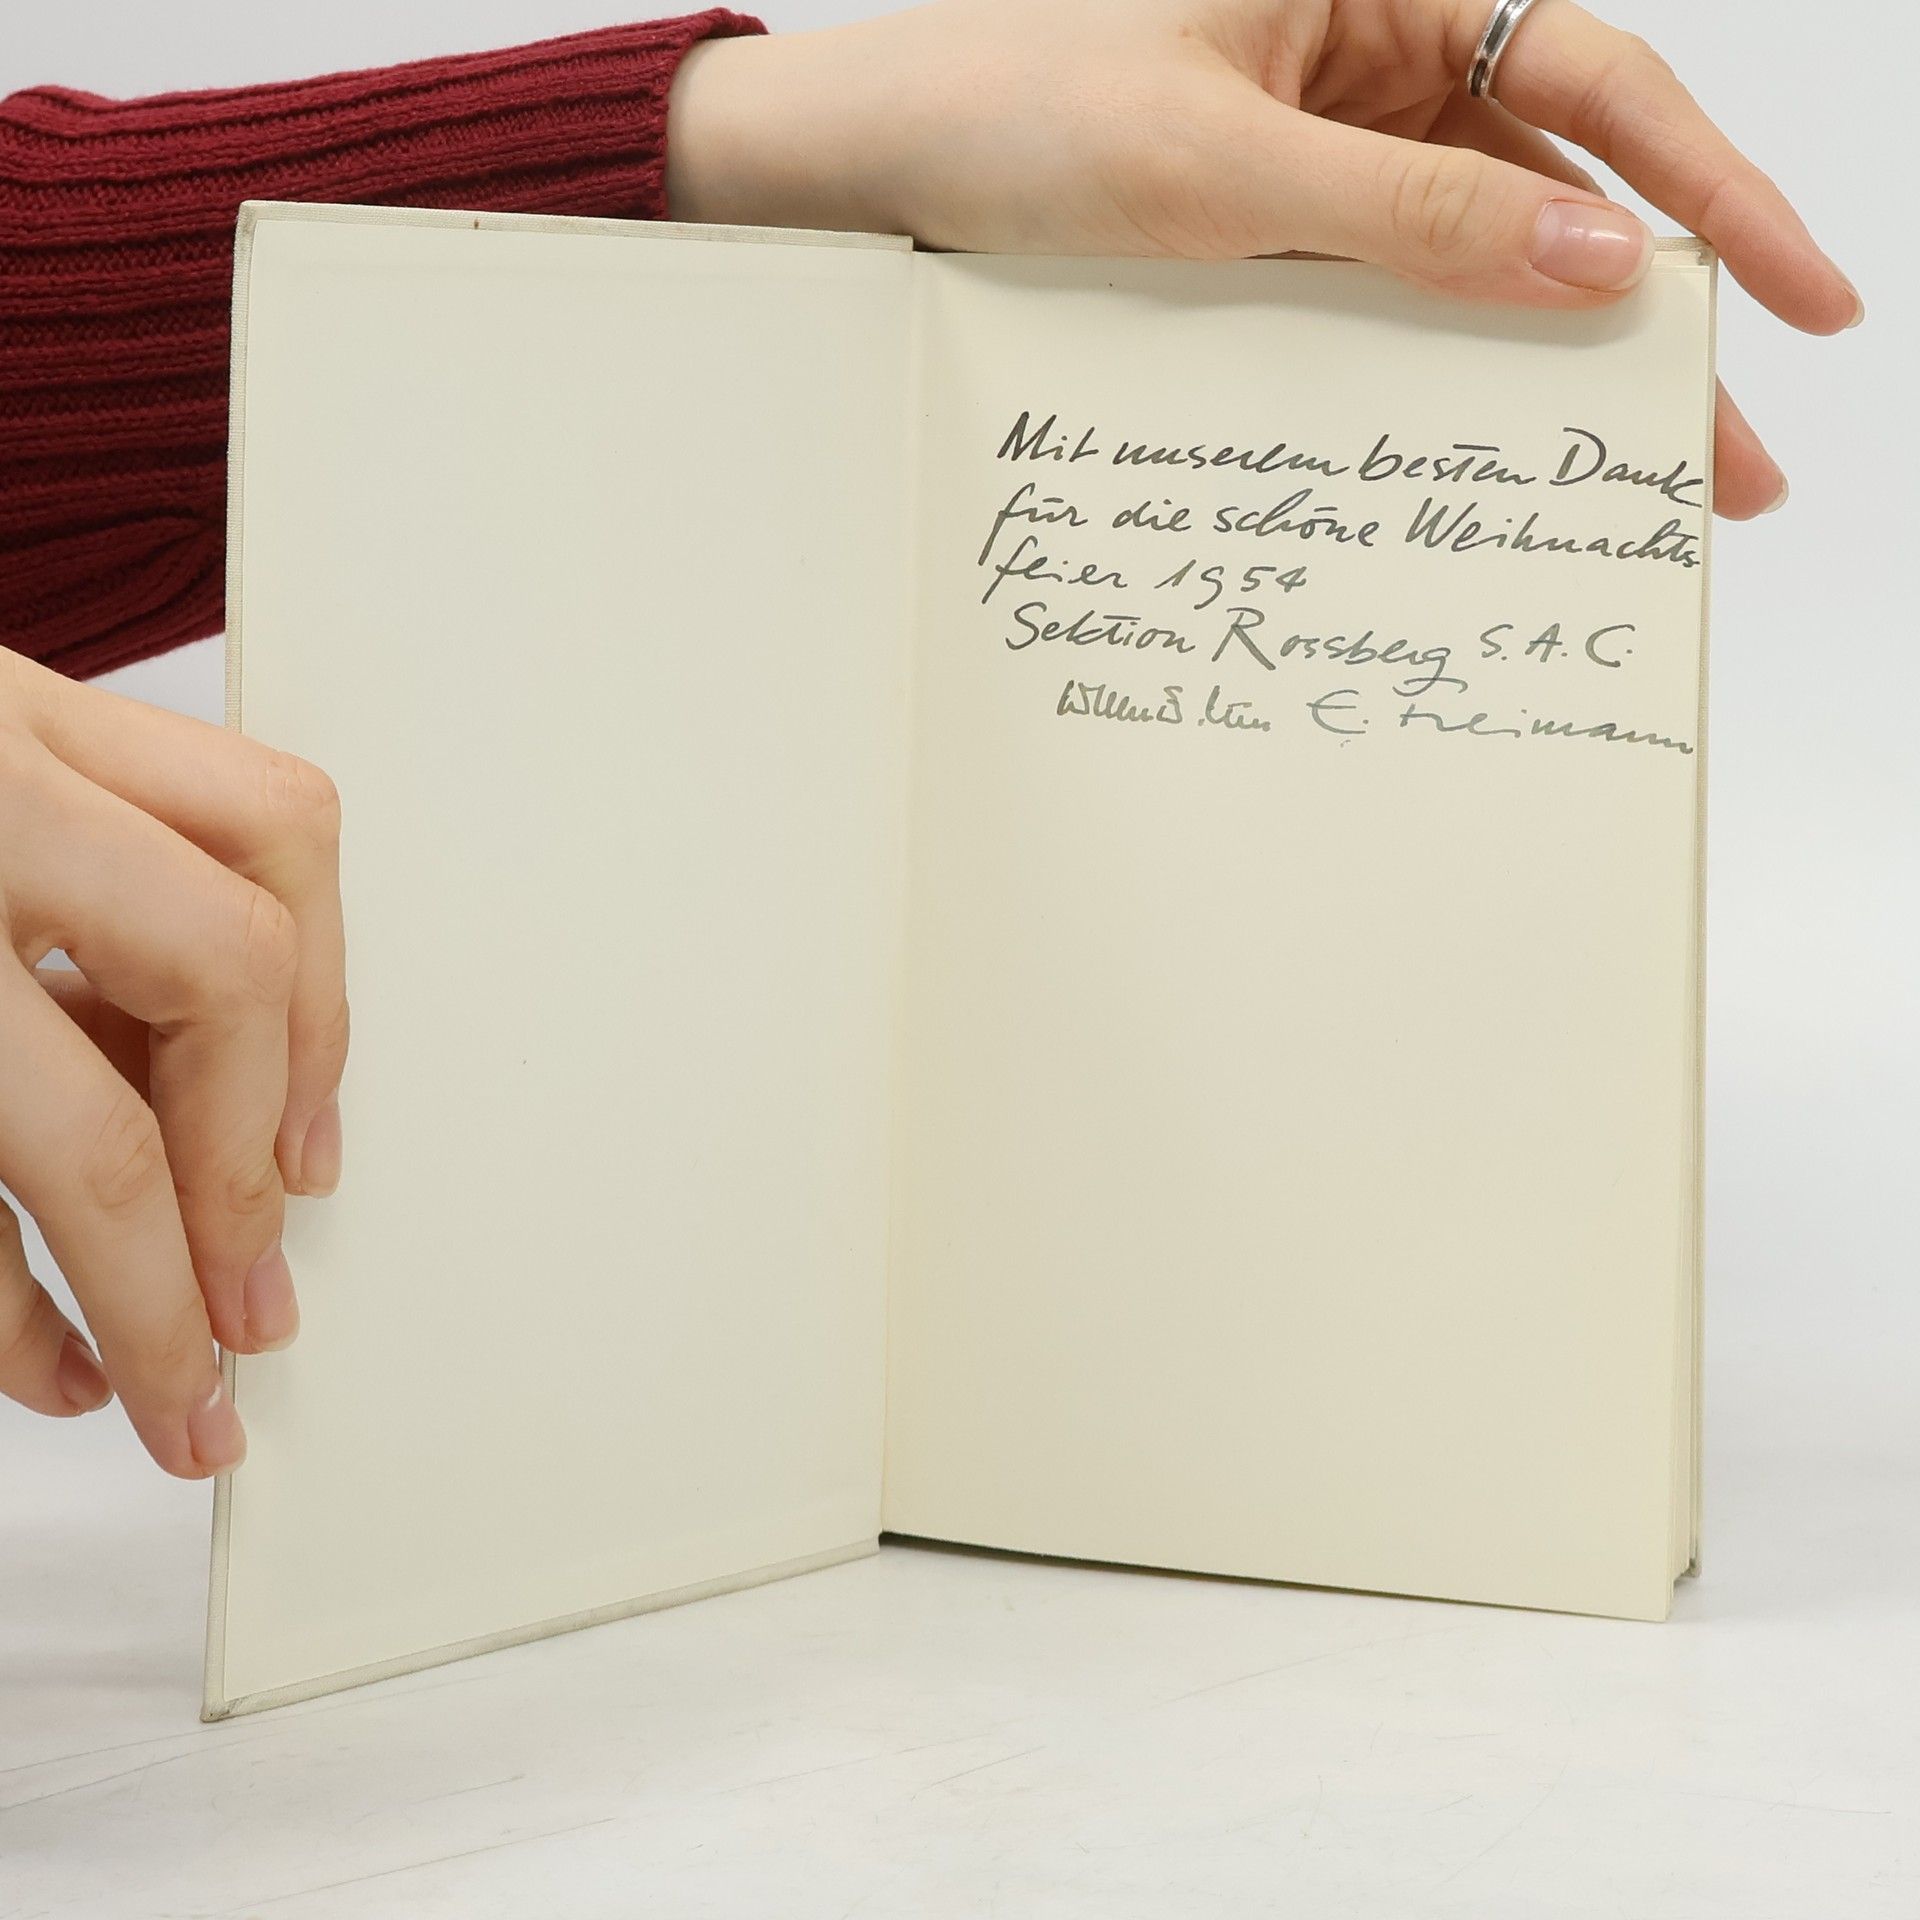 Mit unserem besten Dank
für die schöne Weihnachts
feier 1954
Sektion Rossberg S.A.C.
E. Freimann